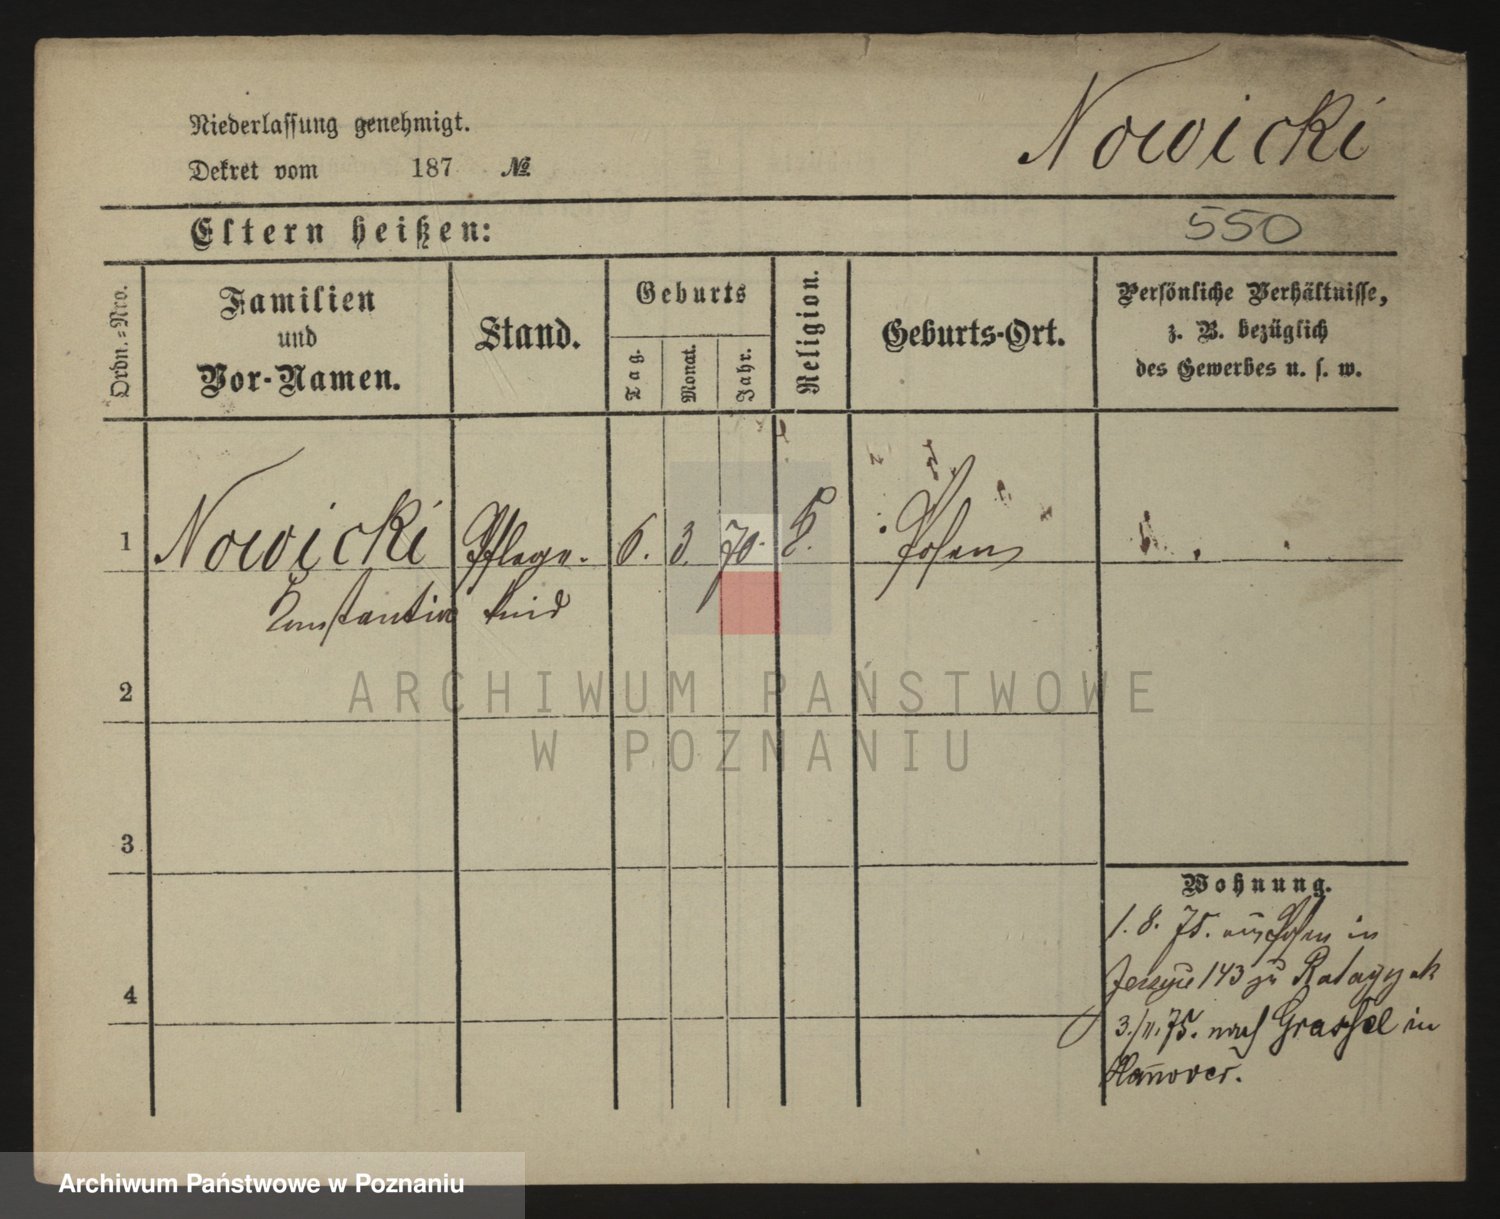 Nowicki
Niederlassung genehmigt.
Dekret vom 187 №
Eltern heißen:
550
Ordn.-Nro.
Familien
und
Vor-Namen.
Stand.
Geburts
Tag.
Monat.
Jahr.
Religion.
Geburts-Ort.
Persönliche Verhältnisse,
z. B. bezüglich
des Gewerbes u. s. w.
1 Nowicki Pflege- 6. 3. 70. Posen
Konstantin kind
2
3
4
Wohnung.
1. 8. 75. aus Posen in
143 zu Ratayczak
3./11.75. nach in
Hannover.
ARCHIWUM PAŃSTWOWE
W POZNANIU
Archiwum Państwowe w Poznaniu